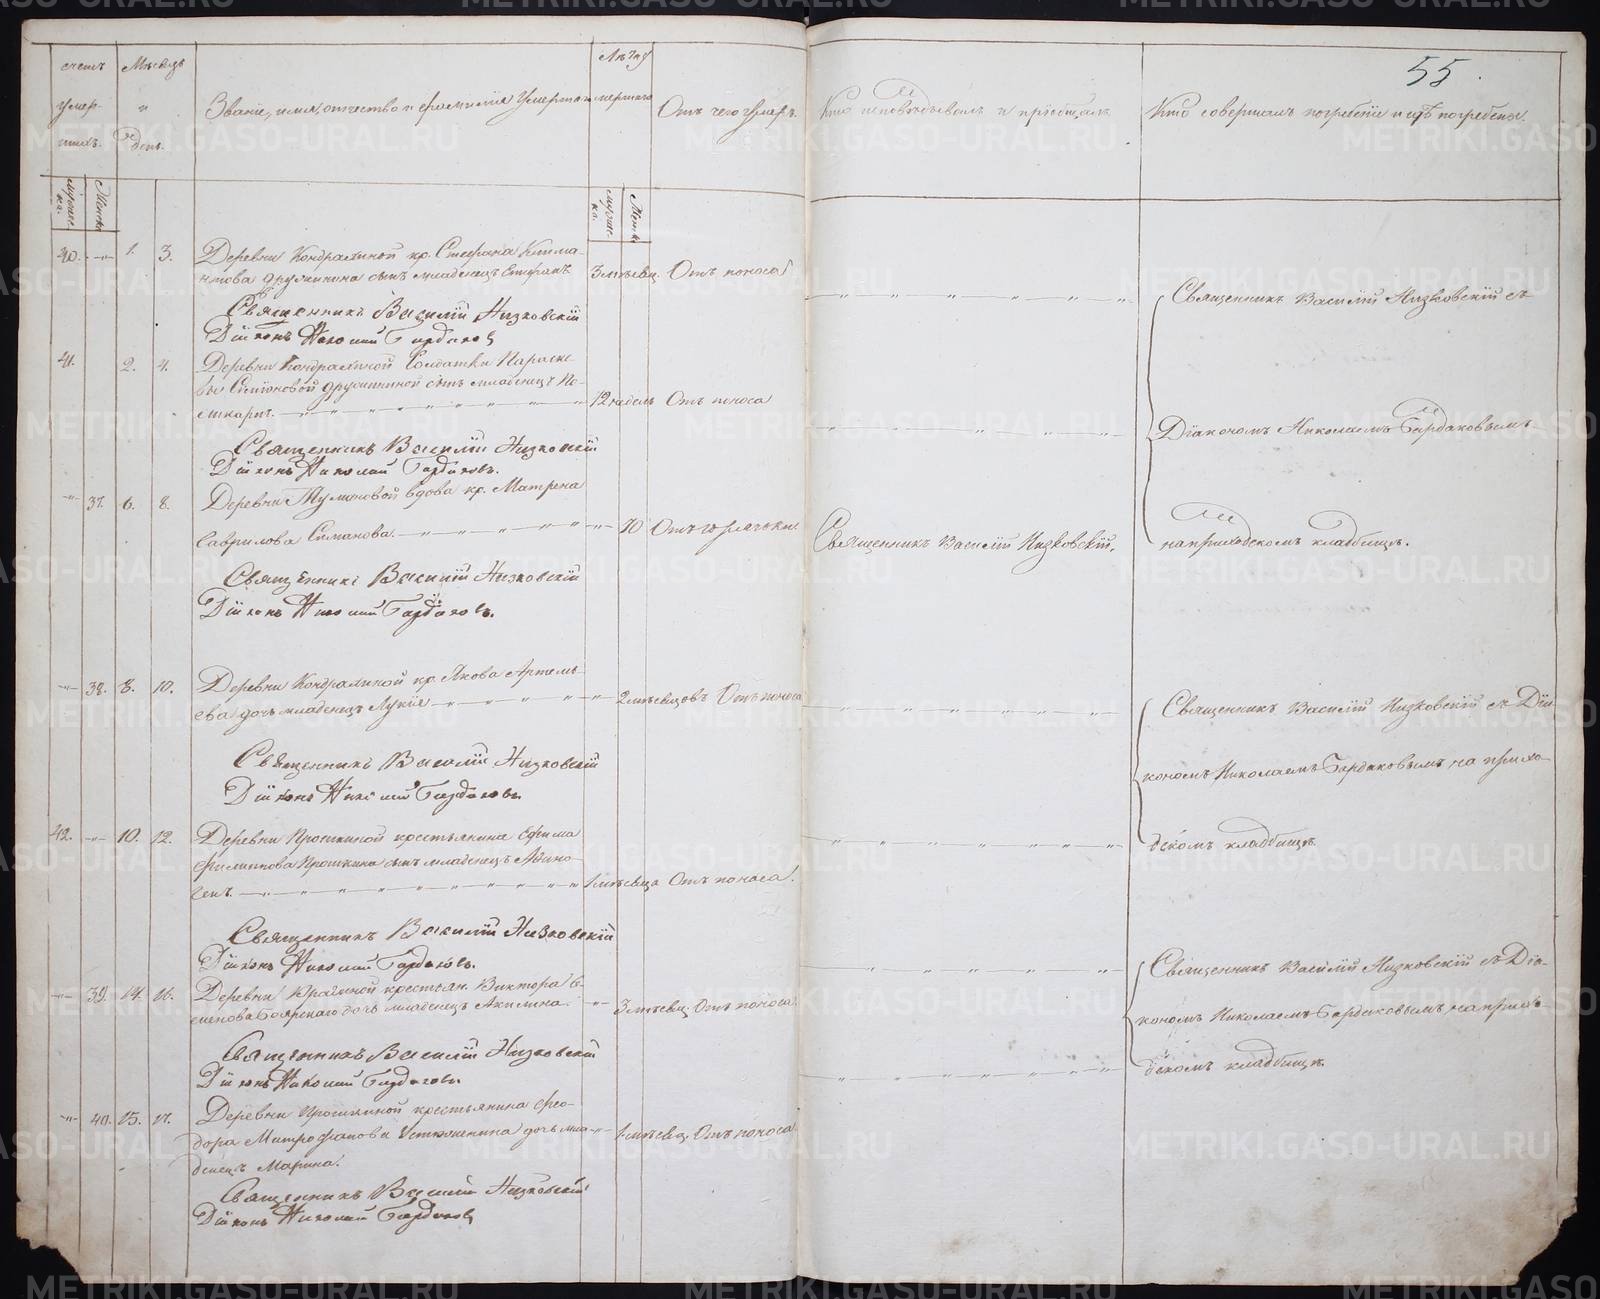 55.
счетъ умер-шихъ.
Мѣсяцъ и день.
Званіе, имя, отчество и фамилія умершаго
Лѣта умершаго
Отъ чего умеръ.
Кто исповѣдывалъ и пріобщалъ
Кто совершалъ погребеніе и гдѣ погребены
мужеска. Женска
мужеска. Женска
40. 1. 3. Деревни Кондрашиной кр. Стефана
сынъ младенецъ Стефанъ 3 мѣсяц. Отъ поноса
Священникъ Василій Низковскій
Діяконъ Николай Бардаковъ
41. 2. 4. Деревни Кондрашиной Солдатки Параске-
вы Симоновой Дружининой сынъ младенецъ По-
ликарпъ. 12 недель Отъ поноса
Священникъ Василій Низковскій
Діяконъ Николай Бардаковъ.
37. 6. 8. Деревни вдова кр. Матрена
Гаврилова Симанова. 70 Отъ горячьки
Священникъ Василій Низковскій
Діяконъ Николай Бардаковъ.
38. 8. 10. Деревни Кондрашиной кр. Якова Артемь-
ева дочь младенецъ Лукія 2 мѣсяцовъ Отъ поноса
Священникъ Василій Низковскій
Діяконъ Николай Бардаковъ
42. 10. 12. Деревни Прошкиной крестьянина Ефима
Филиппова Прошкина сынъ младенецъ Афино-
генъ. 1 мѣсяца Отъ поноса.
Священникъ Василій Низковскій
Діяконъ Николай Бардаковъ.
39. 14. 16. Деревни крестьян. Виктора
Боярскаго дочь младенецъ Акилина. 3 мѣсяц. Отъ поноса
Священникъ Василій Низковскій
Діяконъ Николай Бардаковъ
40. 15. 17. Деревни Прошкиной крестьянина Фео-
дора Митрофанова Устюженина дочь мла-
денецъ Марина. 1 мѣсяц. Отъ поноса
Священникъ Василій Низковскій
Діяконъ Николай Бардаковъ
Священникъ Василій Низковскій.
Священникъ Василій Низковскій съ
Діакономъ Николаемъ Бардаковымъ
на приходскомъ кладбищѣ.
Священникъ Василій Низковскій съ Діа
кономъ Николаемъ Бардаковымъ на прихо-
дскомъ кладбищѣ.
Священникъ Василій Низковскій съ Діа-
кономъ Николаемъ Бардаковымъ, на прихо-
дскомъ кладбищѣ.
METRIKI.GASO-URAL.RU